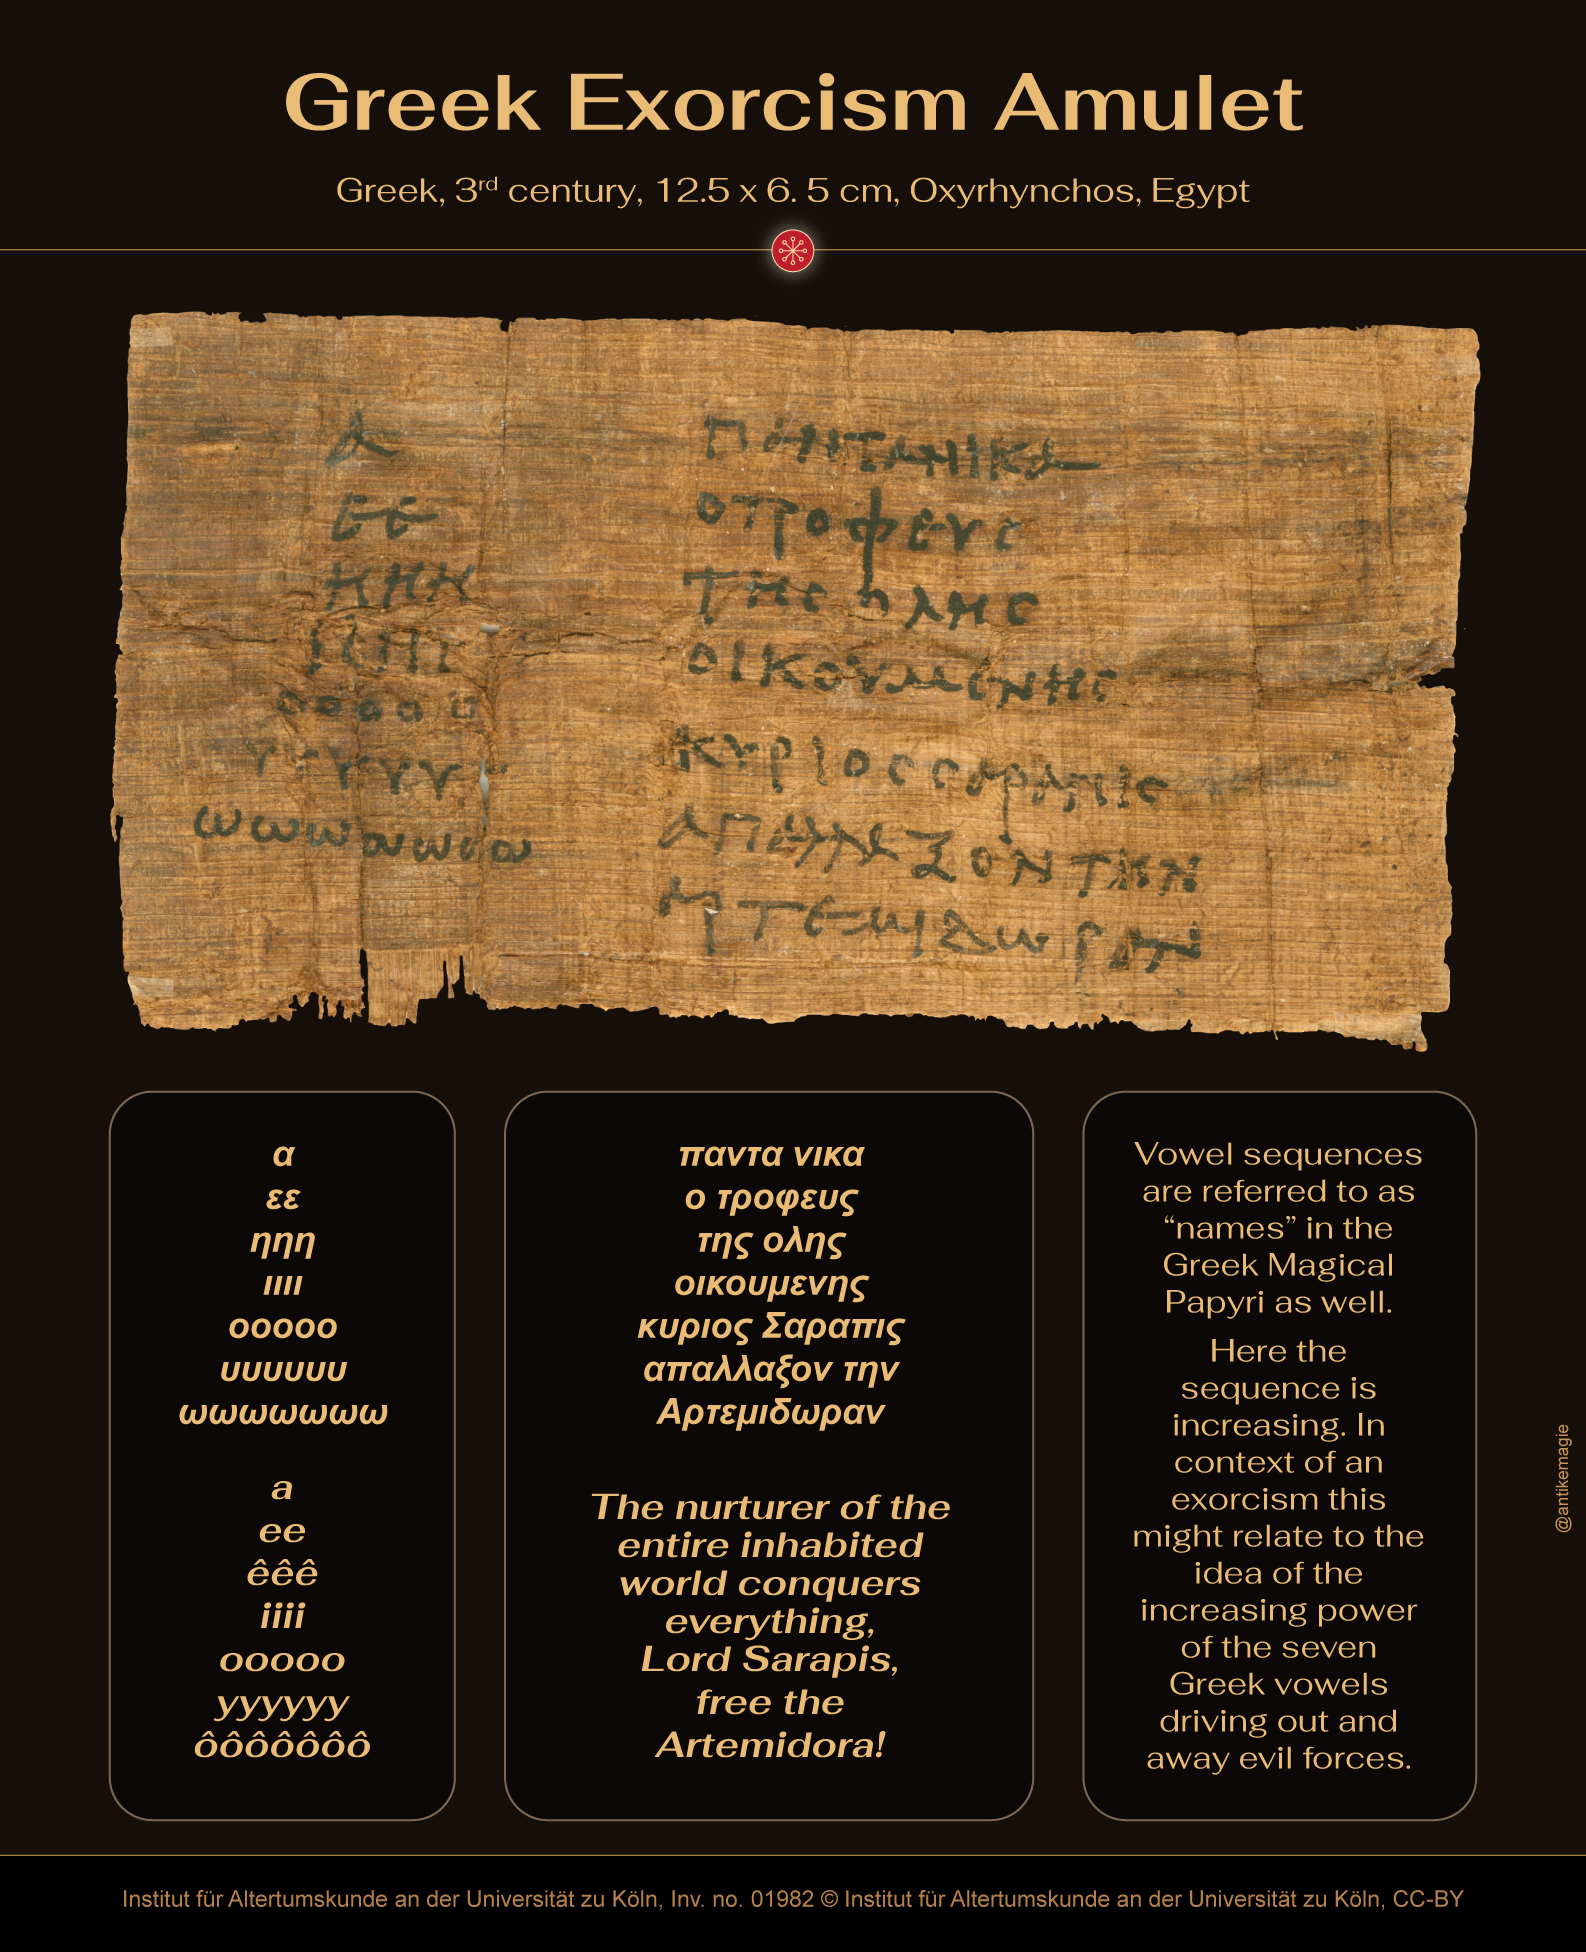 Greek Exorcism Amulet
Greek, 3rd century, 12.5 x 6. 5 cm, Oxyrhynchos, Egypt
Α
ΕΕ
ΗΗΗ
ΙΙΙΙ
ΟΟΟΟΟ
ΥΥΥΥΥΥ
ωωωωωωω
ΠΑΝΤΑΝΙΚΑ
ΟΤΡΟΦΕΥϹ
ΤΗϹΟΛΗϹ
ΟΙΚΟΥΜΕΝΗϹ
ΚΥΡΙΟϹϹΑΡΑΠΙϹ
ΑΠΑΛΛΑΞΟΝΤΗΝ
ΑΡΤΕΜΙΔωΡΑΝ
α
εε
ηηη
ιιιι
οοοοο
υυυυυυ
ωωωωωωω
a
ee
êêê
iiii
ooooo
yyyyyy
ôôôôôôô
παντα νικα
ο τροφευς
της ολης
οικουμενης
κυριος Σαραπις
απαλλαξον την
Αρτεμιδωραν
The nurturer of the
entire inhabited
world conquers
everything,
Lord Sarapis,
free the
Artemidora!
Vowel sequences
are referred to as
“names” in the
Greek Magical
Papyri as well.
Here the
sequence is
increasing. In
context of an
exorcism this
might relate to the
idea of the
increasing power
of the seven
Greek vowels
driving out and
away evil forces.
@antikemagie
Institut für Altertumskunde an der Universität zu Köln, Inv. no. 01982 © Institut für Altertumskunde an der Universität zu Köln, CC-BY